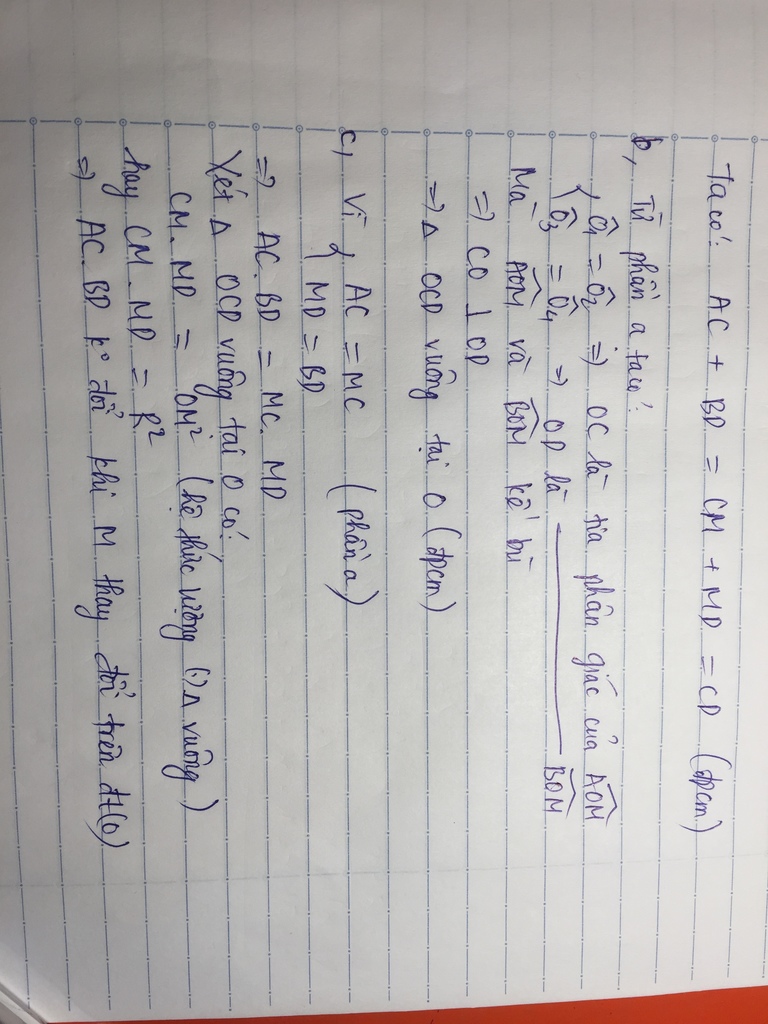 Ta có: AC + BD = CM + MD = CD (đpcm)
b, Từ phần a ta có:
{ Ô1 = Ô2 => OC là tia phân giác của AÔM
Ô3 = Ô4 => OD là ——— BÔM
Mà AÔM và BÔM kề bù
=> CO ⊥ OD
=> Δ OCD vuông tại O (đpcm)
c, Vì { AC = MC (phần a)
MD = BD
=> AC. BD = MC. MD
Xét Δ OCD vuông tại O có:
CM. MD = OM² (hệ thức lượng (.) Δ vuông)
hay CM. MD = R²
=> AC. BD k° đổi khi M thay đổi trên đt(O)